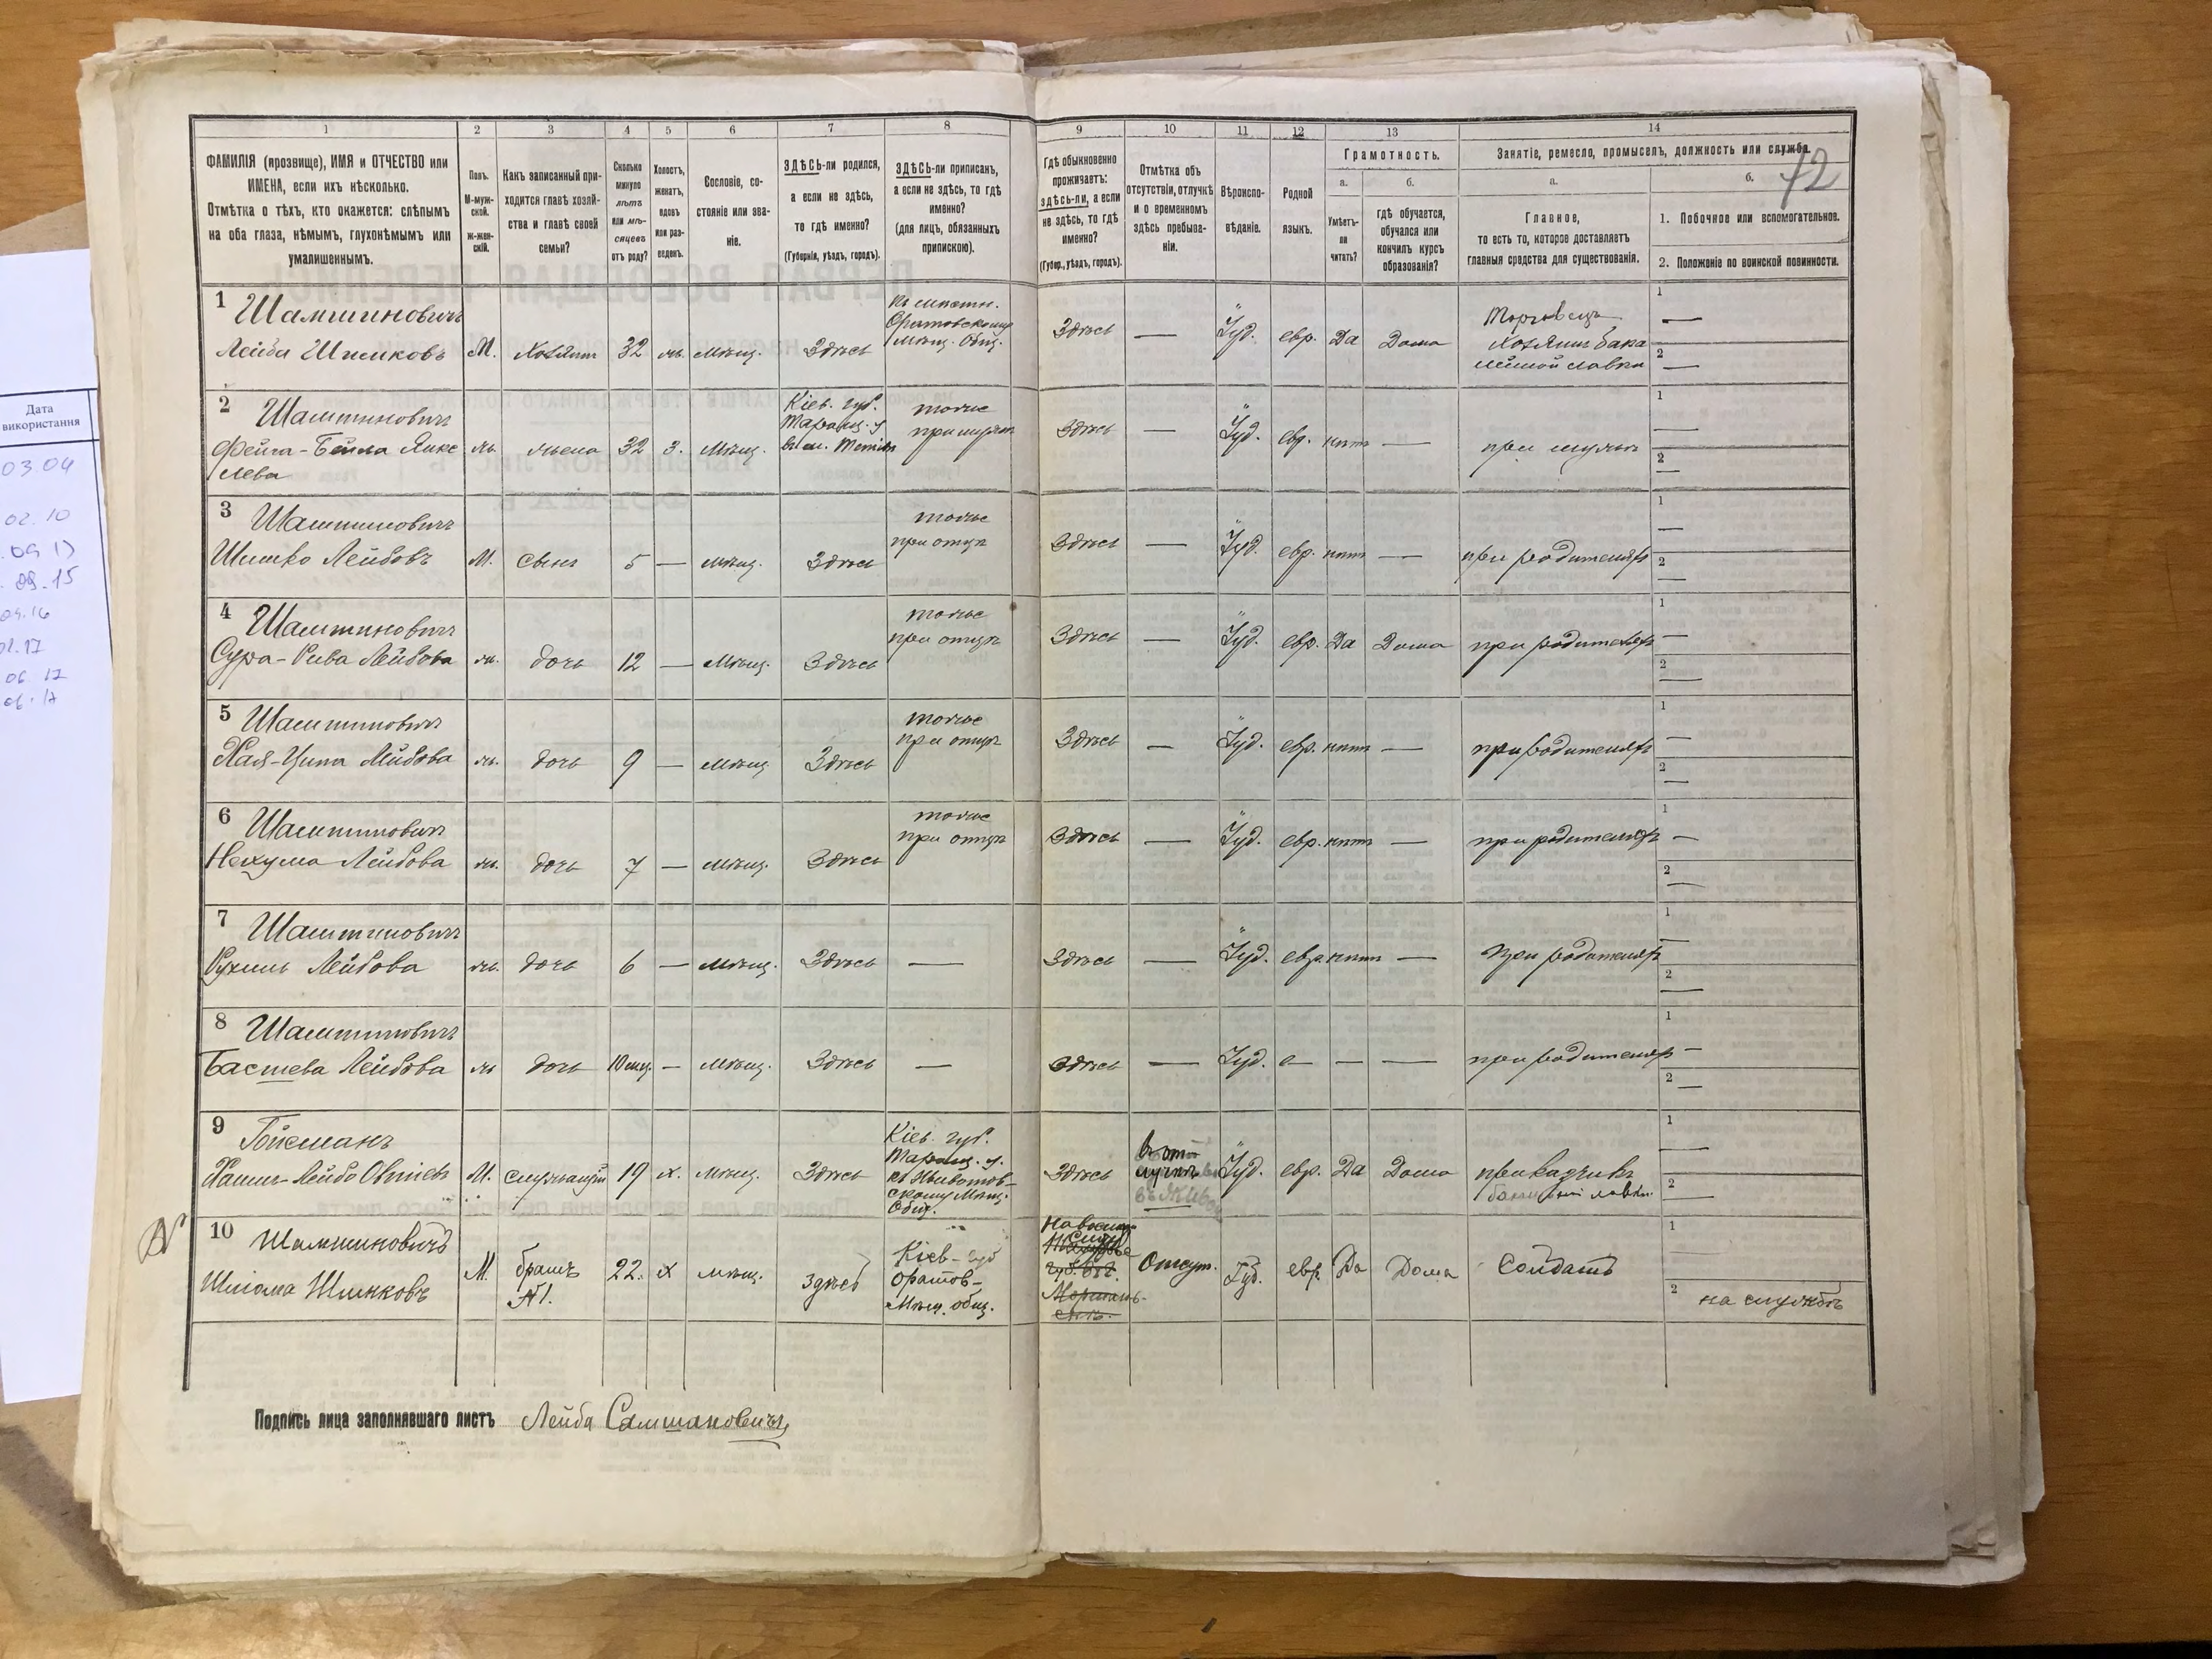 1 2 3 4 5 6 7 8 9 10 11 12 13 14
ФАМИЛІЯ (прозвище), ИМЯ и ОТЧЕСТВО или
ИМЕНА, если ихъ нѣсколько.
Отмѣтка о тѣхъ, кто окажется: слѣпымъ
на оба глаза, нѣмымъ, глухонѣмымъ или
умалишеннымъ.
Полъ.
М-муж-
ской.
ж-жен-
скій.
Какъ записанный при-
ходится главѣ хозяй-
ства и главѣ своей
семьи?
Сколько
минуло
лѣтъ
или мѣ-
сяцевъ
отъ роду?
Холостъ,
женатъ,
вдовъ
или раз-
веденъ.
Сословіе, со-
стояніе или зва-
ніе.
ЗДѢСЬ-ли родился,
а если не здѣсь,
то гдѣ именно?
(Губернія, уѣздъ, городъ).
ЗДѢСЬ-ли приписанъ,
а если не здѣсь, то гдѣ
именно?
(для лицъ, обязанныхъ
припискою).
Гдѣ обыкновенно
проживаетъ:
здѣсь-ли, а если
не здѣсь, то гдѣ
именно?
(Губер., уѣздъ, городъ).
Отмѣтка объ
отсутствіи, отлучкѣ
и о временномъ
здѣсь пребыва-
ніи.
Вѣроиспо-
вѣданіе.
Родной
языкъ.
Грамотность.
а.
Умѣетъ-
ли
читать?
б.
гдѣ обучается,
обучался или
кончилъ курсъ
образованія?
Занятіе, ремесло, промыселъ, должность или служба.
72
а.
Главное,
то есть то, которое доставляетъ
главныя средства для существованія.
б.
1. Побочное или вспомогательное.
2. Положеніе по воинской повинности.
1 Шамшиновичъ
Лейба Шмиковъ М. Хозяин 32 ж. Мѣщ. Здѣсь
Оратовскому
Мѣщ. Общ.
Здѣсь — Іуд. евр. Да Дома
Торговецъ
Хозяин бака
лейной лавки
1 —
2 —
2 Шамшиновичъ
Фейга-Бейла Янке
лева
ж. жена 32 З. Мѣщ.
Кіев. губ.
Таращ. у.
тоже
при мужѣ
Здѣсь — Іуд. евр. нѣтъ — при мужѣ
1 —
2 —
3 Шамшиновичъ
Шимко Лейбовъ М. сынъ 5 — мѣщ. Здѣсь
тоже
при отцѣ
Здѣсь — Іуд. евр. нѣтъ — при родителяхъ
1 —
2 —
4 Шамшиновичъ
Сура-Рива Лейбова ж. дочь 12 — Мѣщ. Здѣсь
тоже
при отцѣ
Здѣсь — Іуд. евр. Да Дома при родителяхъ
1 —
2 —
5 Шамшиновичъ
Хая-Ципа Лейбова ж. дочь 9 — мѣщ. Здѣсь
тоже
при отцѣ
Здѣсь — Іуд. евр. нѣтъ — при родителяхъ
1 —
2 —
6 Шамшиновичъ
Нехума Лейбова ж. дочь 7 — мѣщ. Здѣсь
тоже
при отцѣ
Здѣсь — Іуд. евр. нѣтъ — при родителяхъ
1 —
2 —
7 Шамшиновичъ
Рухель Лейбова ж. дочь 6 — Мѣщ. Здѣсь —
Здѣсь — Іуд. евр. нѣтъ — при родителяхъ
1 —
2 —
8 Шамшиновичъ
Басшева Лейбова ж дочь 10 мѣц. — Мѣщ. Здѣсь —
Здѣсь — Іуд. е— — — при родителяхъ
1 —
2 —
9 Гойсманъ
Лейбо М. служащій 19 х. мѣщ. Здѣсь
Кіев. губ.
Таращ. у.
къ Животов-
скому Мѣщ.
Общ.
Здѣсь
Іуд. евр. Да Дома
прикащикъ
лавки
1 —
2 —
10 Шамшиновичъ
Шлома Шлиоковъ М.
братъ
№1.
22. х мѣщ. здѣсь
Кіев-губ
Оратов-
Мѣщ. общ.
Отсут. Іуд. евр. Да Дома Солдатъ
1
2 на службѣ
Подпись лица заполнявшаго листъ Лейба Самшановичъ
Дата
використання
03.04
02.10
09.15
04.16
01.17
06.17
06.17